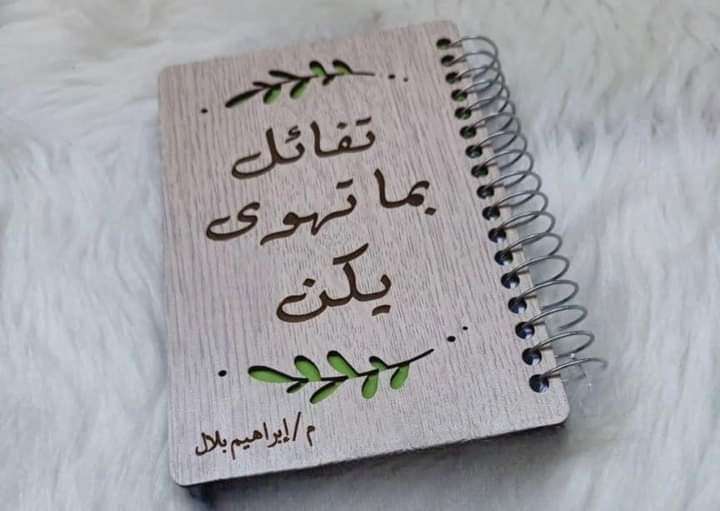 تفائل
بما تهوى
يكن
م/إبراهيم بلال